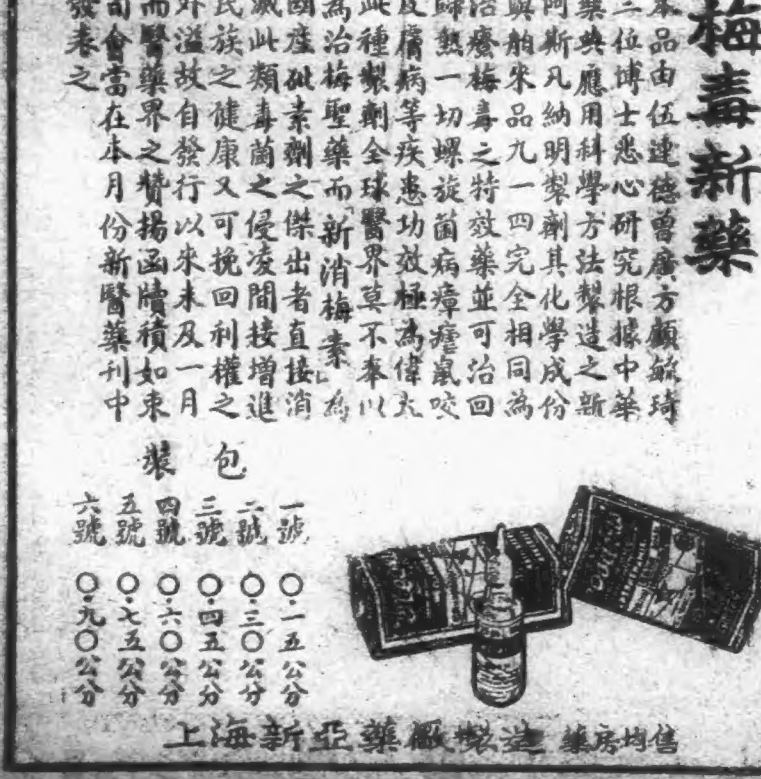 梅毒新藥
本品由伍連德曾廣方顧毓琦
三位博士悉心研究根據中華
藥典應用科學方法製造之新
阿斯凡納明製劑其化學成份
與舶來品九一四完全相同為
治療梅毒之特效藥並可治回
歸熱一切螺旋菌病瘴瘧鼠咬
及膚病等疾患功效極為偉大
此種製劑全球醫界莫不奉以
為治梅聖藥而「新消梅素」為
國產砒素劑之傑出者直接消
滅此類毒菌之侵凌間接增進
民族之健康又可挽回利權之
外溢故自發行以來未及一月
而醫藥界之贊揚函牘積如束
司會當在本月份新醫藥刊中
發表之
包裝
一號 〇·一五公分
二號 〇·三〇公分
三號 〇·四五公分
四號 〇·六〇公分
五號 〇·七五公分
六號 〇·九〇公分
上海新亞藥廠製造 藥房均售